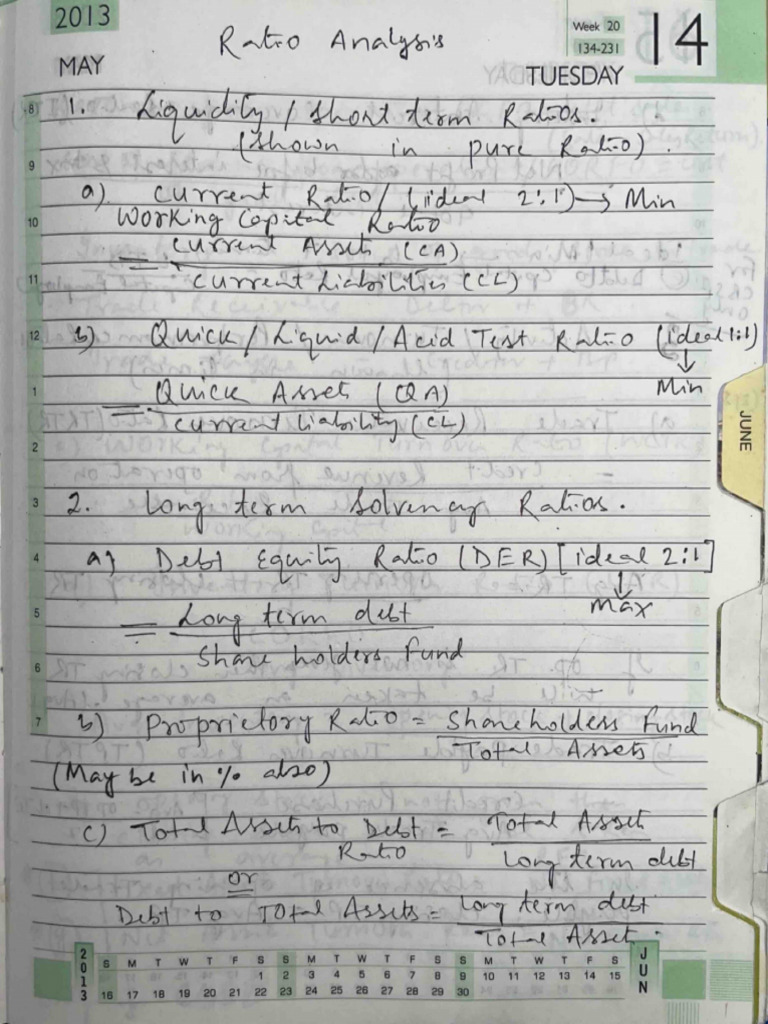 2013
MAY
Ratio Analysis
Week 20
134-231
14
TUESDAY
8 1. Liquidity / Short term Ratios.
(Shown in pure Ratio).
9
a) Current Ratio / (ideal 2:1) → Min
10 Working Capital Ratio
= Current Assets (CA)
11 Current Liabilities (CL)
12 b) Quick / Liquid / Acid Test Ratio (ideal 1:1)
↓
Min
1 = Quick Assets (QA)
Current Liability (CL)
2
3 2. Long term Solvency Ratios.
4 a) Debt Equity Ratio (DER) [ideal 2:1]
↓
Max
5 = Long term debt
6 Share holders fund
7 b) Proprietory Ratio = Shareholders fund
Total Assets
(May be in % also)
c) Total Assets to Debt = Total Assets
Ratio Long term debt
or
Debt to Total Assets = Long term debt
Total Assets
JUNE
2013
JUN
S M T W T F S S M T W T F S S M T W T F S
1 2 3 4 5 6 7 8 9 10 11 12 13 14 15
16 17 18 19 20 21 22 23 24 25 26 27 28 29 30